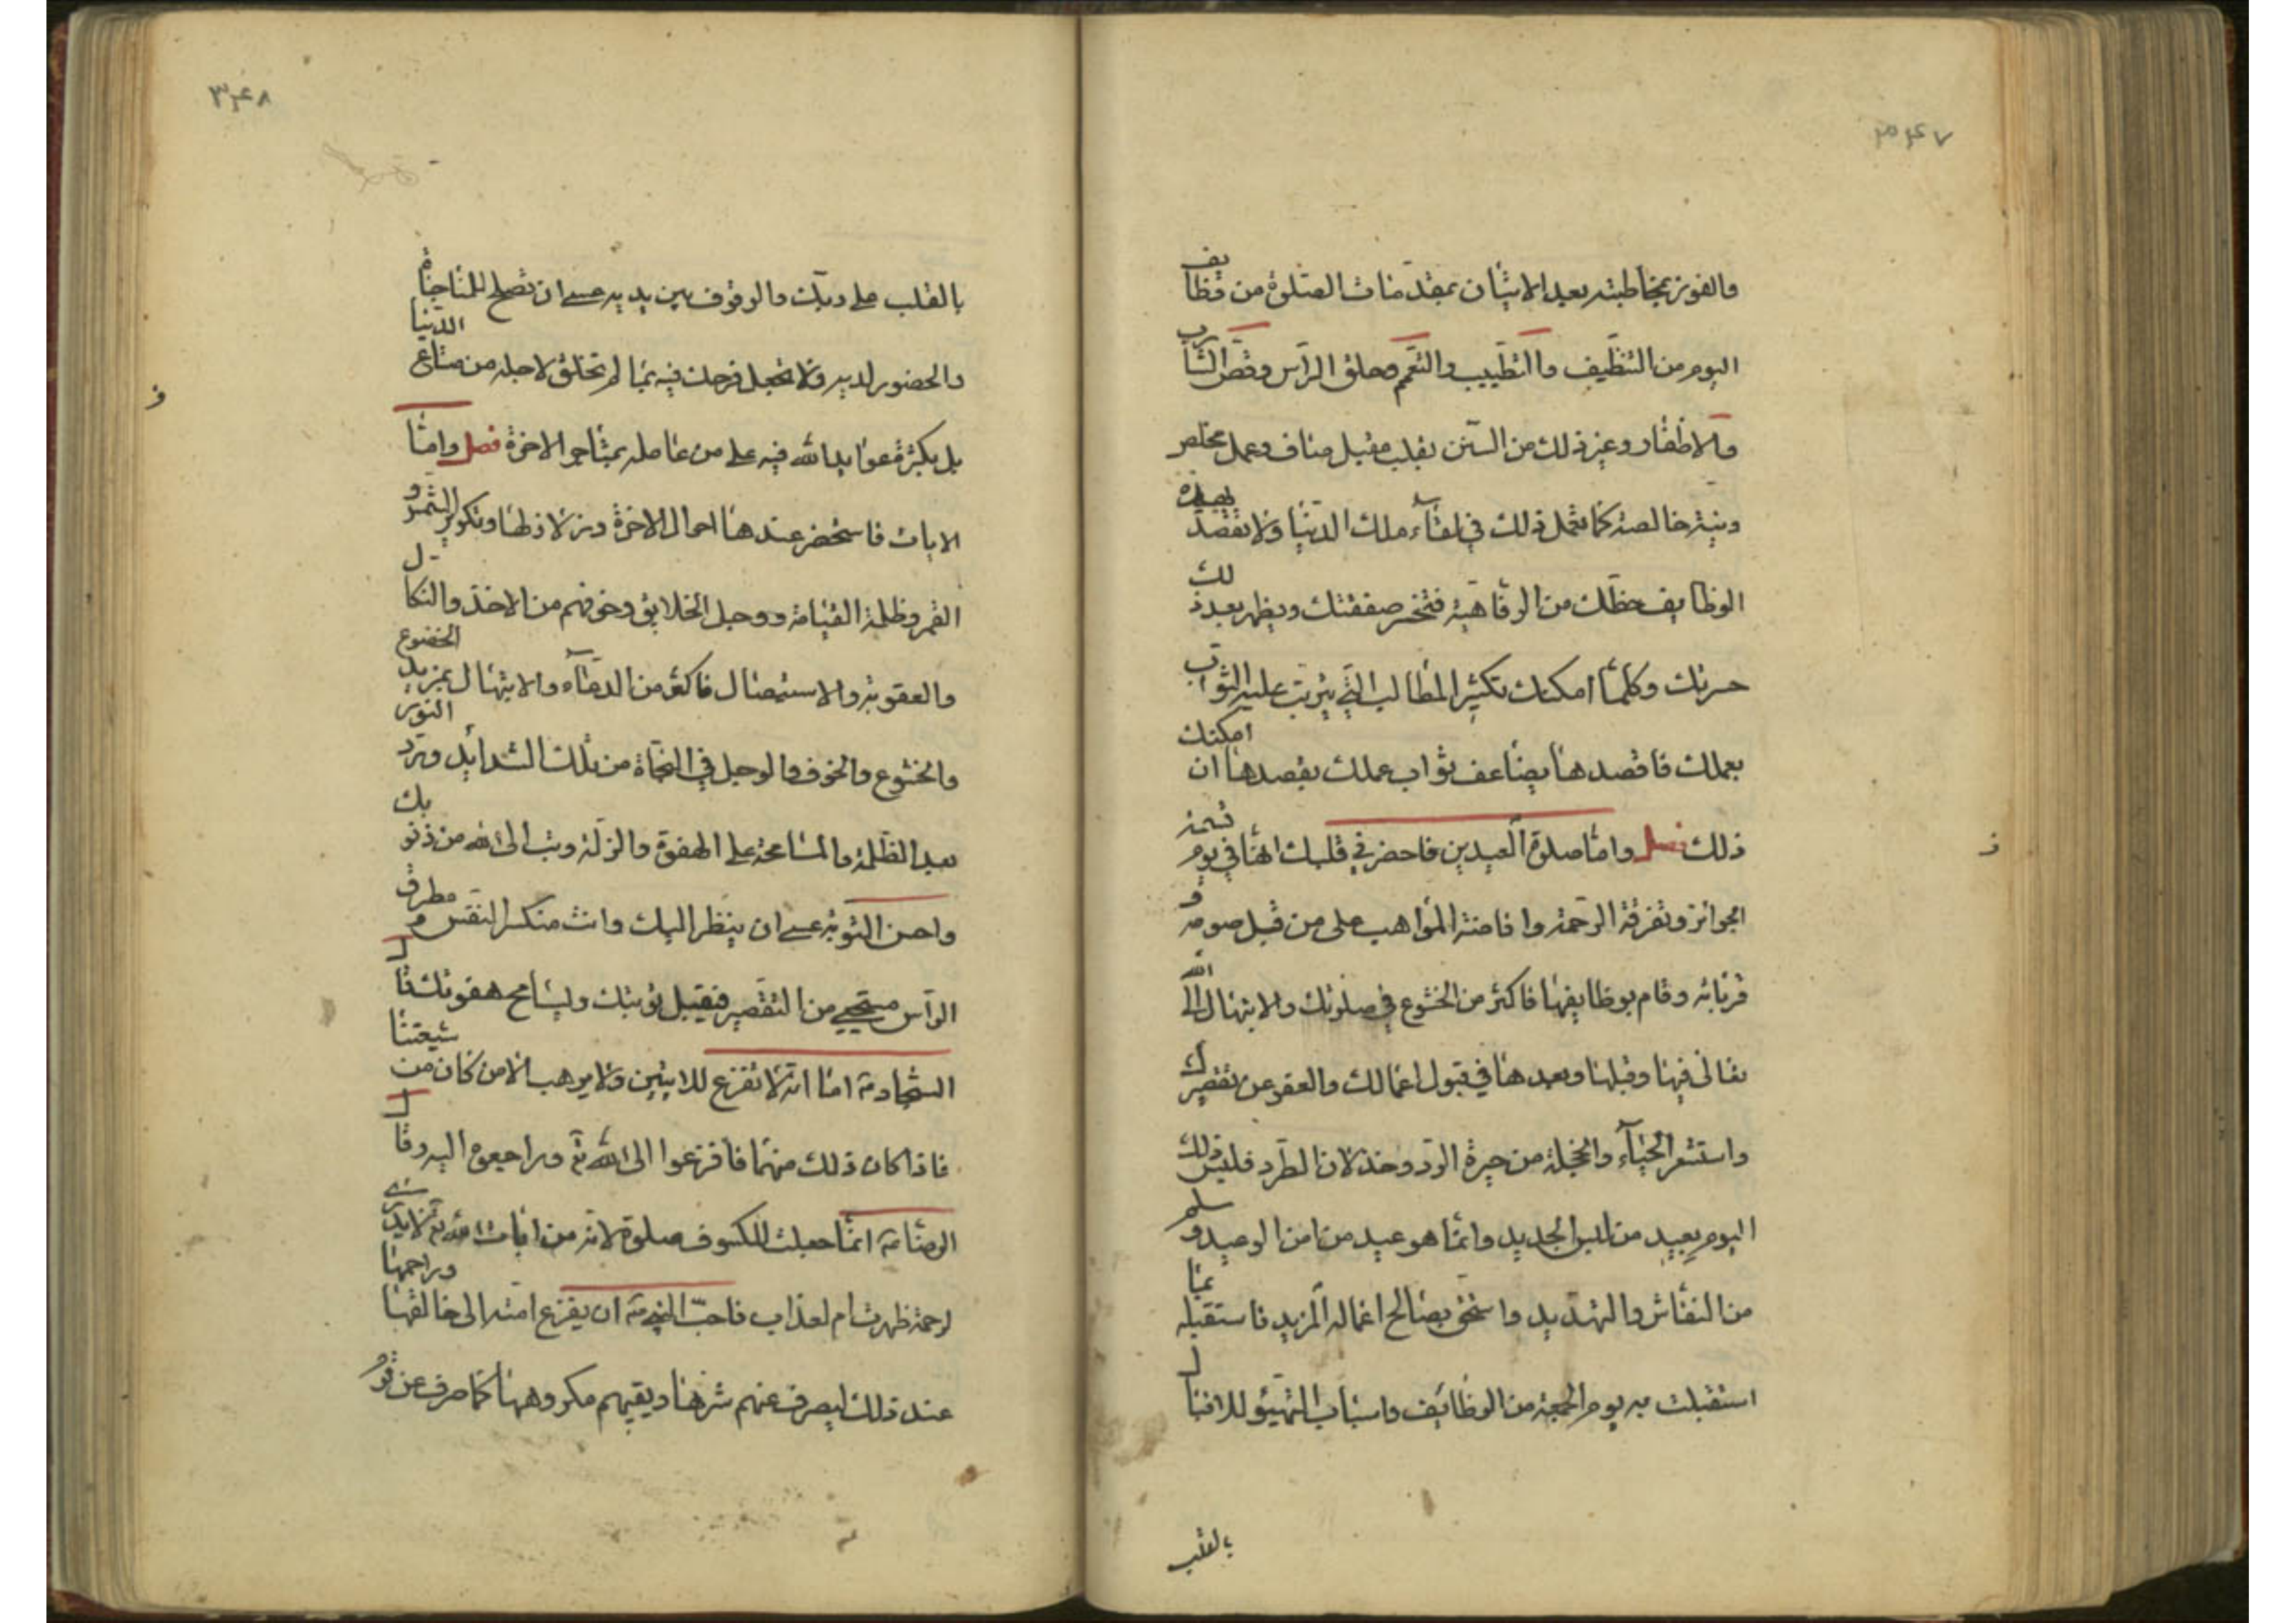 ٣٤٧
والفوز بمخاطبته بعد الاتيان بمقدمات الصلوة من وظايف
اليوم من التنظيف والتطييب والتعمم وحلق الراس وقص الشارب
والاظفار وغير ذلك من السنن بقلب مقبل صاف وعمل مخلص
ونية خالصة كما تعمل ذلك في لقاء ملك الدنيا ولا تقصد بهذه
الوظايف حظك من الرفاهية فتخسر صفقتك ويظهر بعد ذلك
حسرتك وكلما امكنك تكثير المطالب التي يترتب عليه الثواب
بعملك فاقصدها يضاعف ثواب عملك بقصدها ان امكنك
ذلك فصل واما صلوة العيدين فاحضر في قلبك انها في يوم قسمة
الجوائز وتفرقة الرحمة وافاضة المواهب على من قبل صومه و
قربانه وقام بوظايفها فاكثر من الخشوع في صلوتك والابتهال الى الله
تعالى فيها وقبلها وبعدها في قبول اعمالك والعفو عن تقصيرك
واستشعر الحياء والخجلة من حيرة الرد وخذلان الطرد فليس ذلك
اليوم بعيد من لبس الجديد وانما هو عيد من امن الوعيد وسلم
من النقاش والتهديد واستحق بصالح اعماله المزيد فاستقبله بما
استقبلت به يوم الجمعة من الوظائف واسباب التهيؤ للاقبال
بالقلب
٣٤٨
بالقلب على ربك والوقوف بين يديه عسى ان تصلح للمناجاة
والحضور لديه ولا تجعل فرحك فيه بما لم تخلق لاجله من متاع الدنيا
بل بكثرة عوايد الله فيه على من عامله بمتاجر الاخرة فصل واما
الايات فاستحضر عندها احوال الاخرة وزلازلها وتكوير الشمس و
القمر وظلمة القيامة ووجل الخلايق وخوفهم من الاخذ والنكال
والعقوبة والاستيصال فاكثر من الدعاء والابتهال بمزيد الخضوع
والخشوع والخوف والوجل في النجاة من تلك الشدايد ورد النور
بعد الظلمة والمسامحة على الهفوة والزلة وتب الى الله من ذنوبك
واحسن التوبة عسى ان ينظر اليك وانت منكسر النفس مطرق
الراس مستحيي من التقصير فيقبل توبتك ويسامح هفوتك قال
السجاد ع اما انه لا تفزع للايتين ولا يرهب الا من كان من شيعتنا
فاذا كان ذلك منهما فافزعوا الى الله تع وراجعوه اليه وقال
الرضا ع انما جعلت للكسوف صلوة لانه من ايات الله تع لا يدرى
لرحمة ظهرت ام لعذاب فاحب النبي ص ان يفزع امته الى خالقها وراحمها
عند ذلك ليصرف عنهم شرها ويقيهم مكروهها كما صرف عن قوم